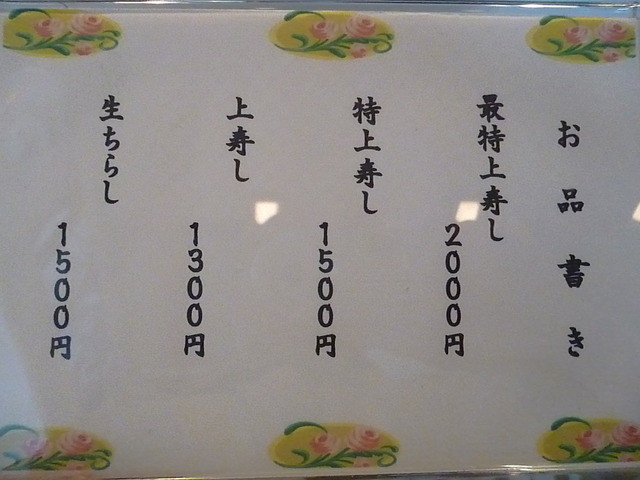 お品書き
最特上寿し
2000円
特上寿し
1500円
上寿し
1300円
生ちらし
1500円